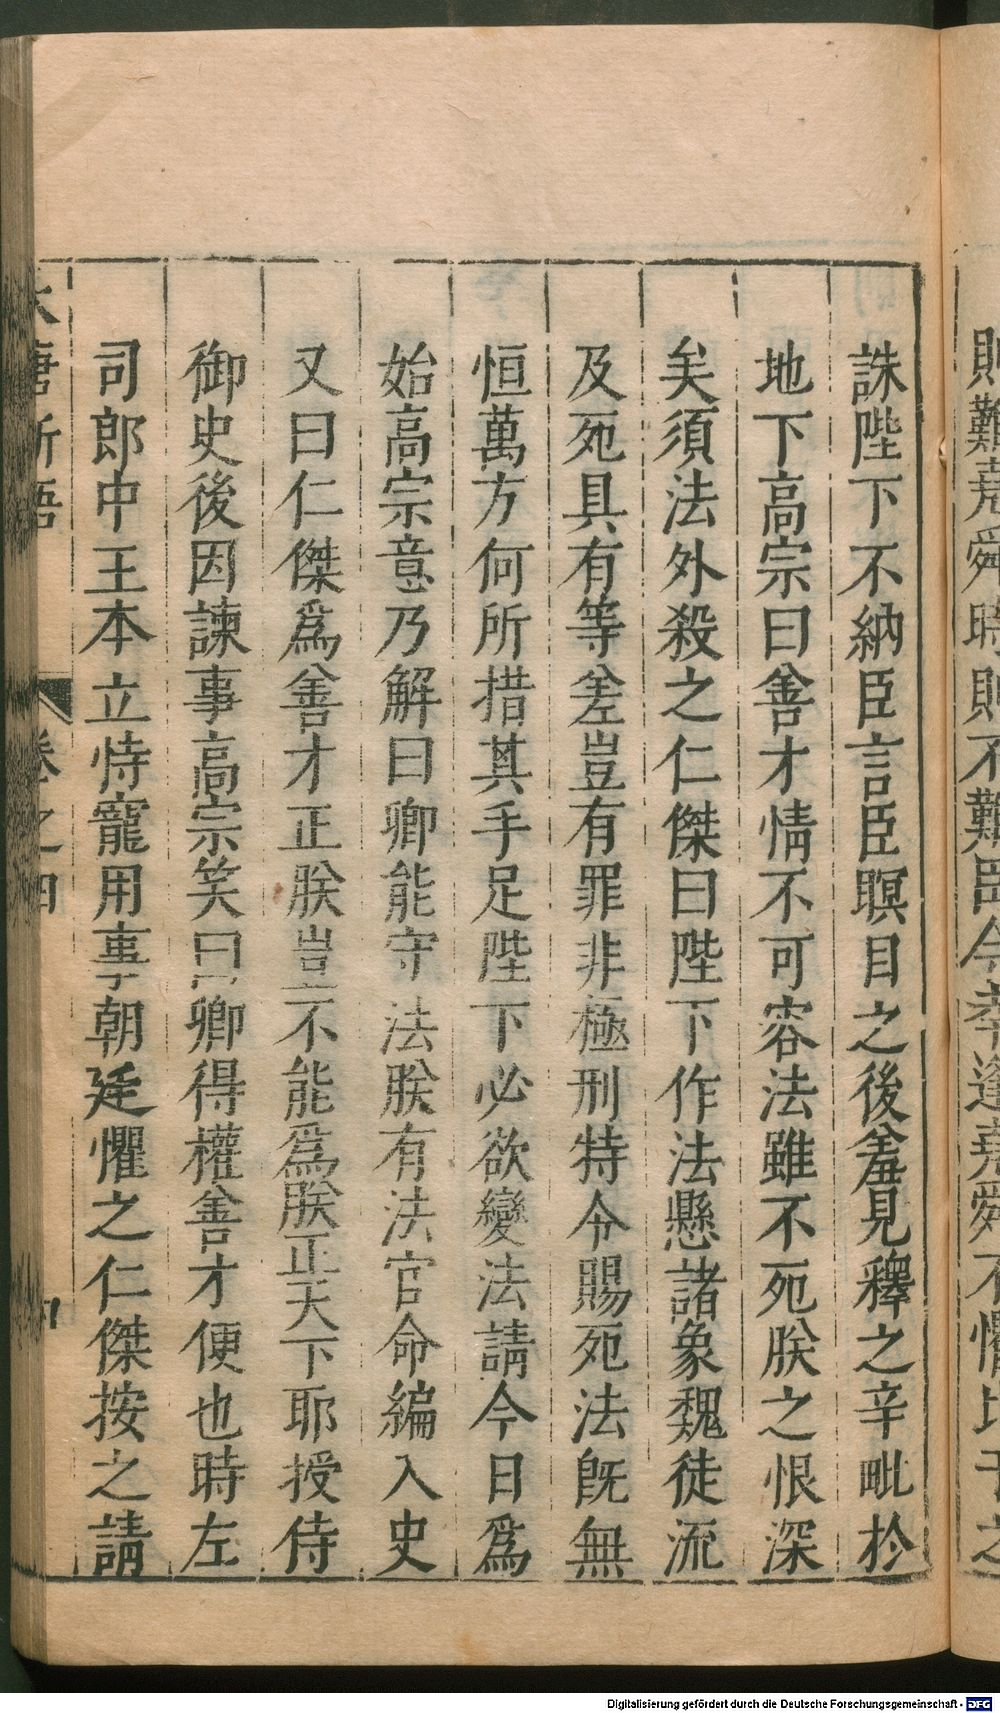 則難堯舜時則不難臣今幸逢堯舜不懼比干之
誅陛下不納臣言臣瞑目之後羞見釋之辛毗於
地下高宗曰善才情不可容法雖不死朕之恨深
矣須法外殺之仁傑曰陛下作法懸諸象魏徒流
及死具有等差豈有罪非極刑特令賜死法既無
恒萬方何所措其手足陛下必欲變法請今日爲
始高宗意乃解曰卿能守法朕有法官命編入史
又曰仁傑爲善才正朕豈不能爲朕正天下耶授侍
御史後因諫事高宗笑曰卿得權善才便也時左
司郎中王本立恃寵用事朝廷懼之仁傑按之請
大唐新語 卷之四
Digitalisierung gefördert durch die Deutsche Forschungsgemeinschaft - DFG